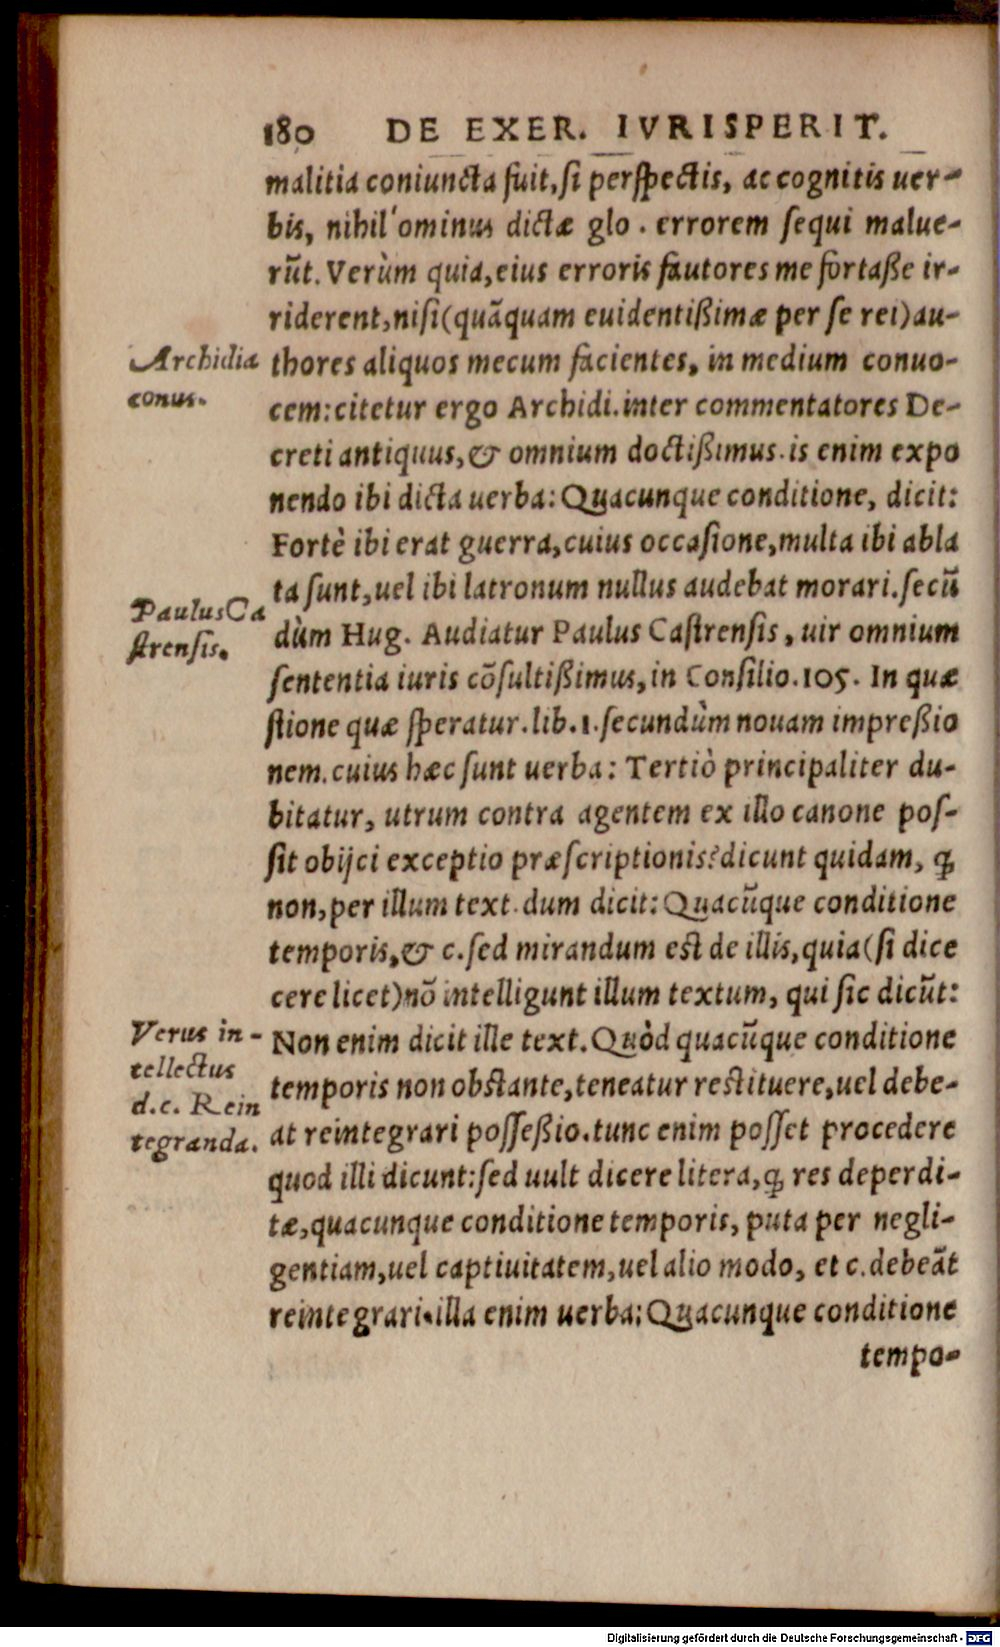 180 DE EXER. IVRISPERIT.
malitia coniuncta fuit, ſi perſpectis, ac cognitis uer-
bis, nihil'ominus dictæ glo. errorem ſequi malue-
rūt. Verùm quia, eius erroris fautores me fortaße ir-
riderent, niſi (quāquam euidentißimæ per ſe rei) au-
Archidia
conus.
thores aliquos mecum facientes, in medium conuo-
cem: citetur ergo Archidi. inter commentatores De-
creti antiquus, & omnium doctißimus. is enim expo
nendo ibi dicta uerba: Quacunque conditione, dicit:
Fortè ibi erat guerra, cuius occaſione, multa ibi abla
ta ſunt, uel ibi latronum nullus audebat morari. ſecū
Paulus Ca
ſtrenſis.
dùm Hug. Audiatur Paulus Caſtrenſis, uir omnium
ſententia iuris cōſultißimus, in Conſilio. 105. In quæ
ſtione quæ ſperatur. lib. 1. ſecundùm nouam impreßio
nem. cuius hæc ſunt uerba: Tertiò principaliter du-
bitatur, utrum contra agentem ex illo canone poſ-
ſit obijci exceptio præſcriptionis? dicunt quidam, ꝙ
non, per illum text. dum dicit: Quacūque conditione
temporis, & c. ſed mirandum est de illis, quia (ſi dice
cere licet) nō intelligunt illum textum, qui ſic dicūt:
Verus in-
tellectus
d. c. Rein
tegranda.
Non enim dicit ille text. Quòd quacūque conditione
temporis non obstante, teneatur restituere, uel debe-
at reintegrari poſſeßio. tunc enim poſſet procedere
quod illi dicunt: ſed uult dicere litera, ꝙ res deperdi-
tæ, quacunque conditione temporis, puta per negli-
gentiam, uel captiuitatem, uel alio modo, et c. debeāt
reintegrari. illa enim uerba: Quacunque conditione
tempo-
Digitalisierung gefördert durch die Deutsche Forschungsgemeinschaft - DFG